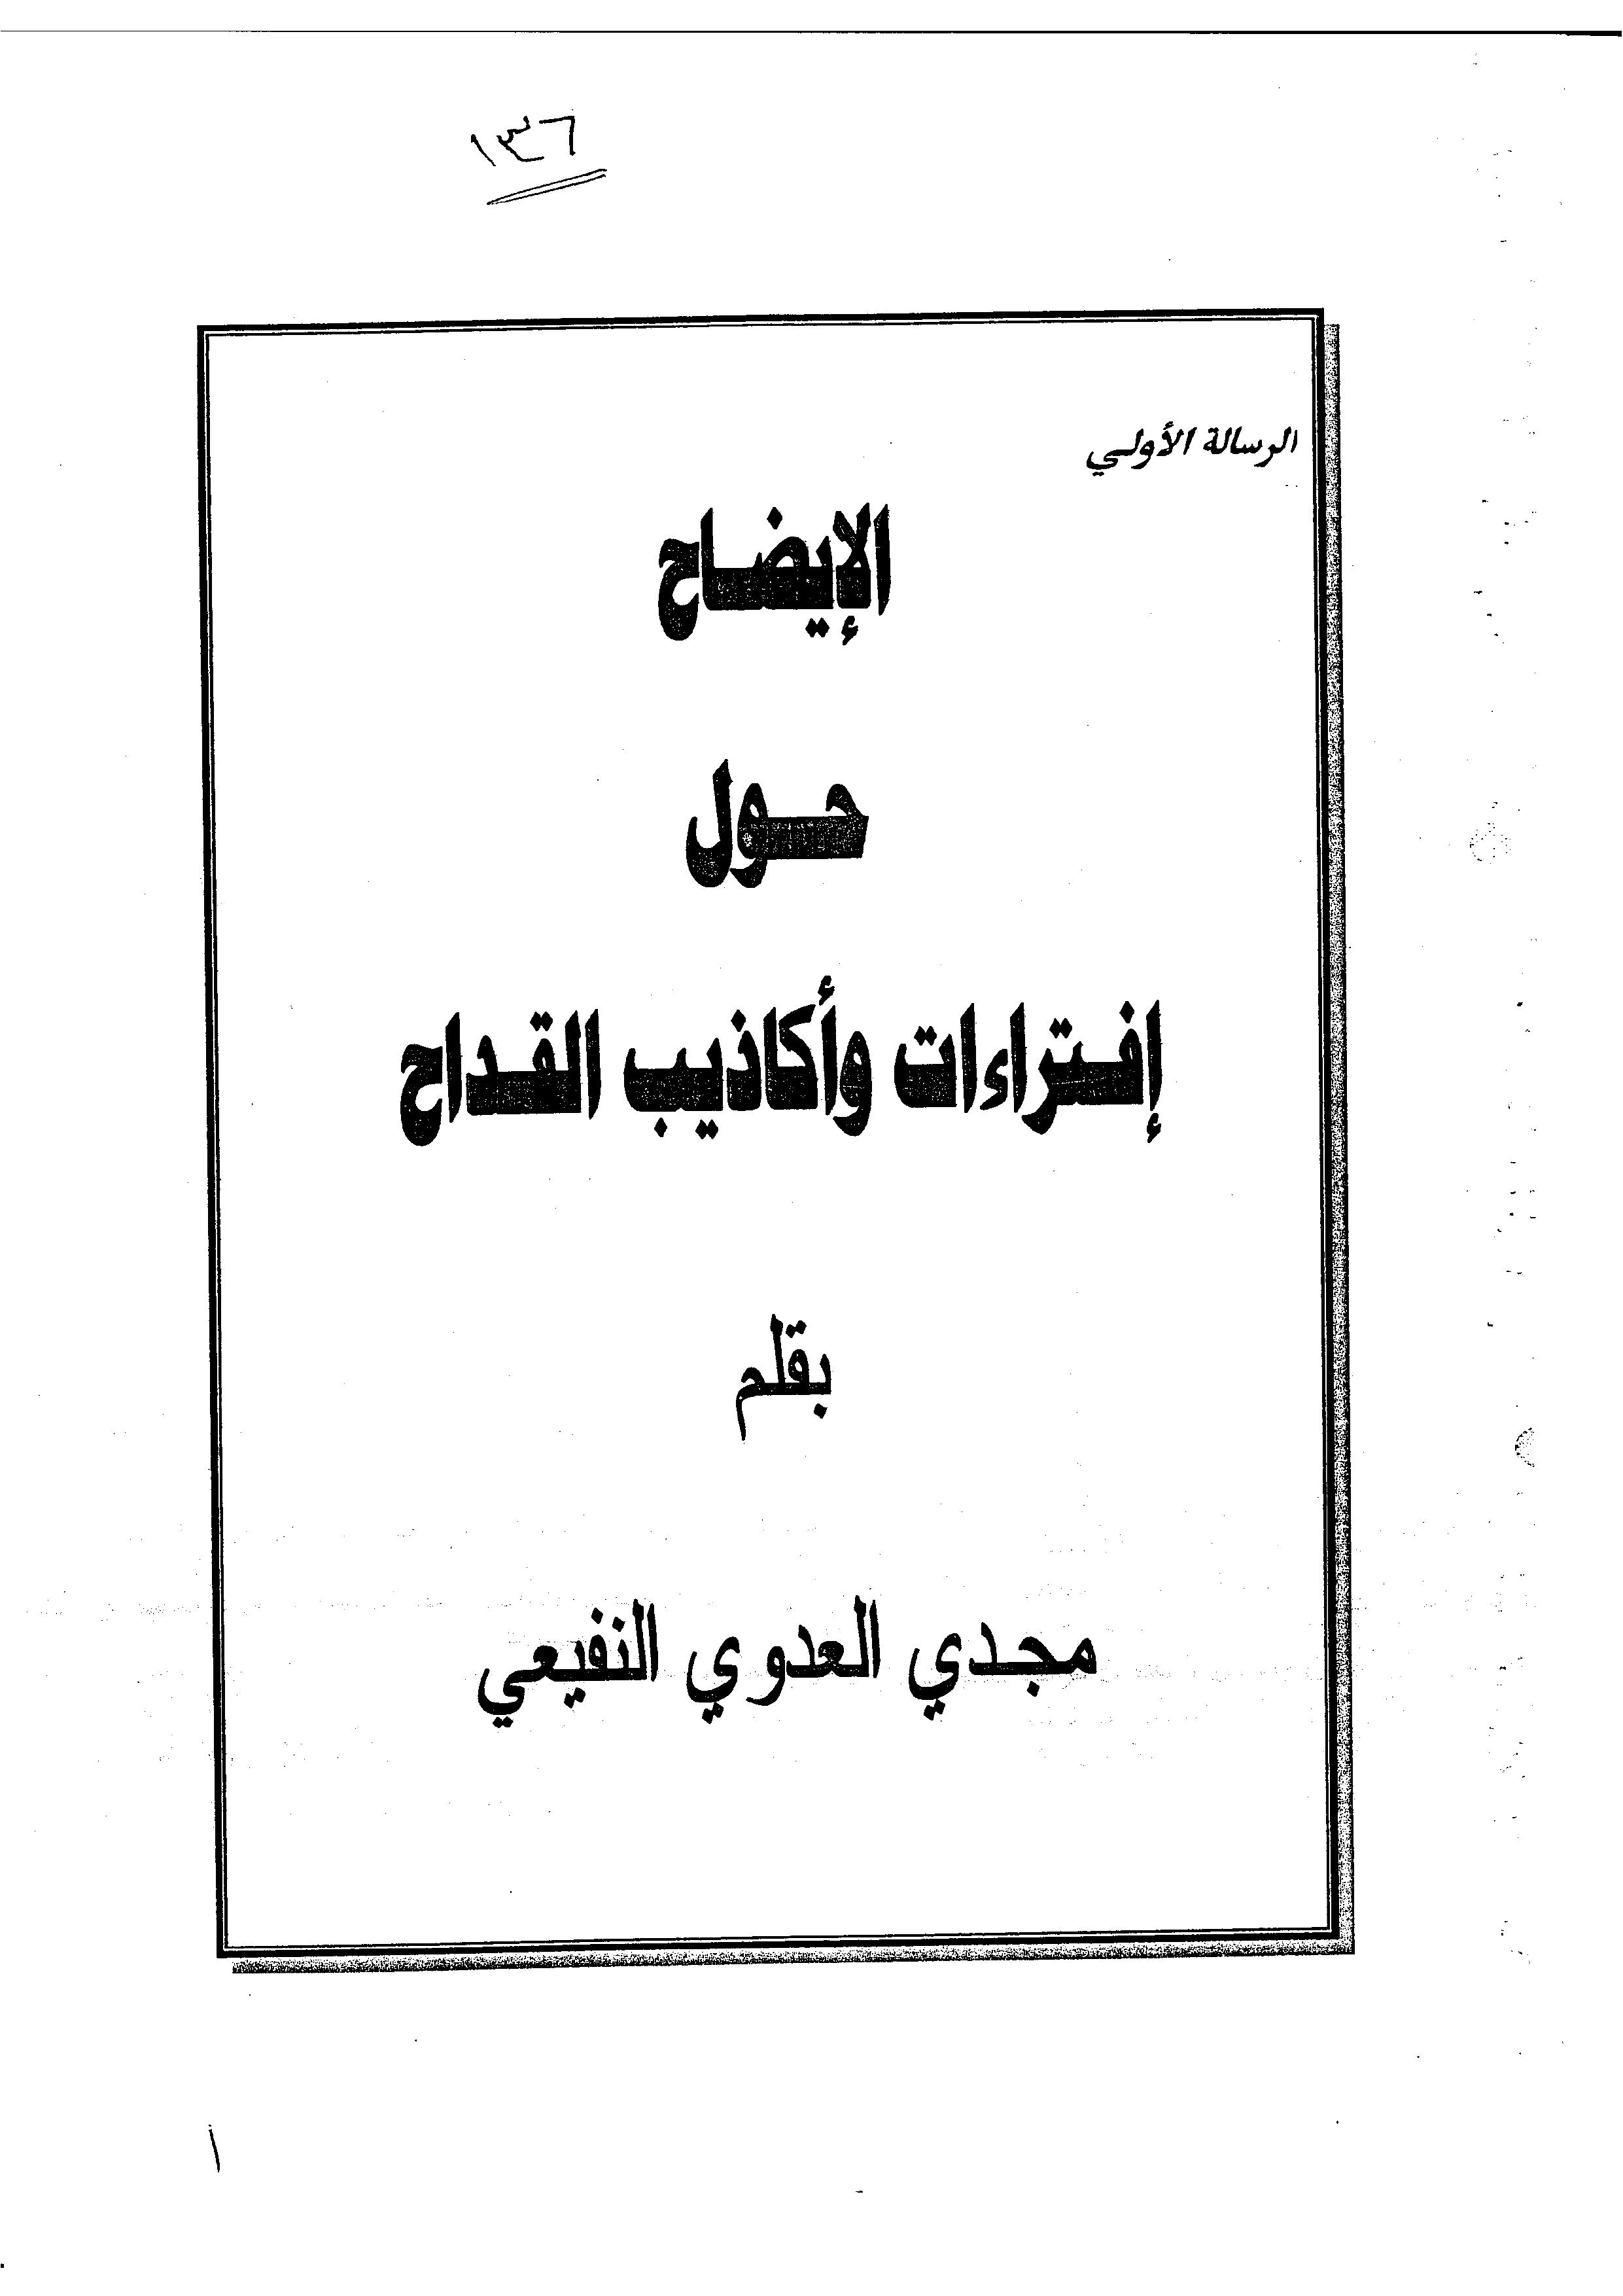 ١٣٦
الرسالة الأولي
الإيضاح
حول
إفتراءات وأكاذيب القداح
بقلم
مجدي العدوي النفيعي
١